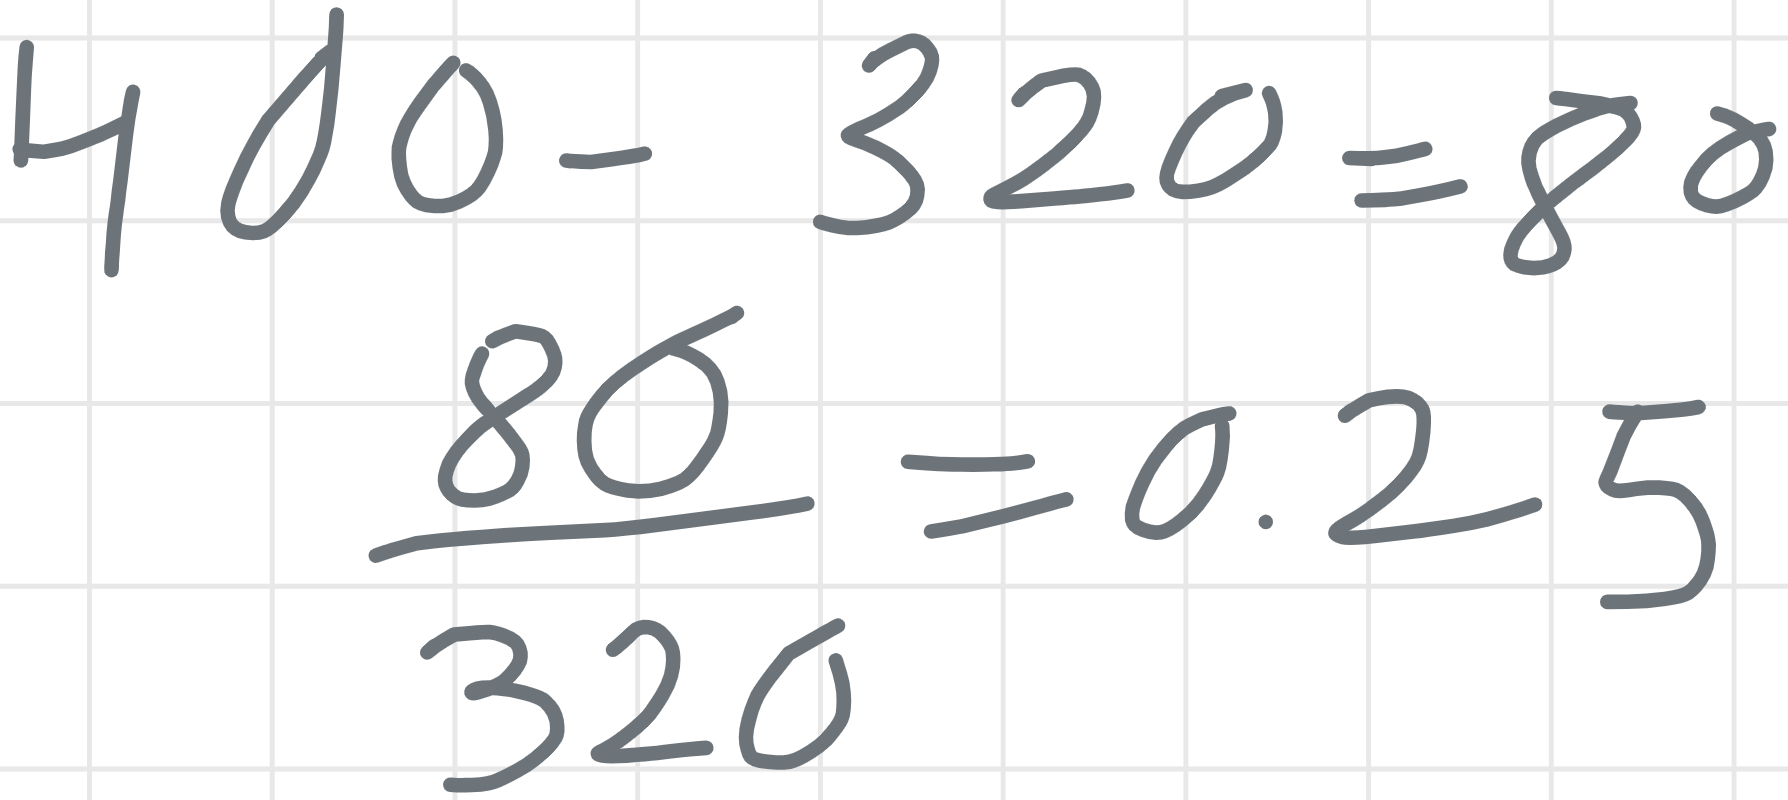 400 - 320 = 80
80/320 = 0.25